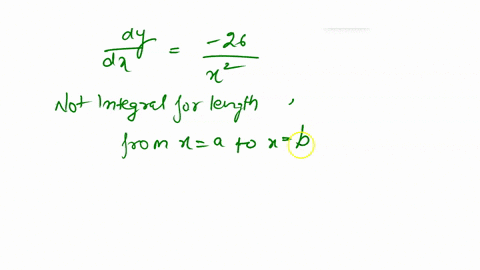 dy/dx = -26/x²
Not Integral for length,
from x=a to x=b